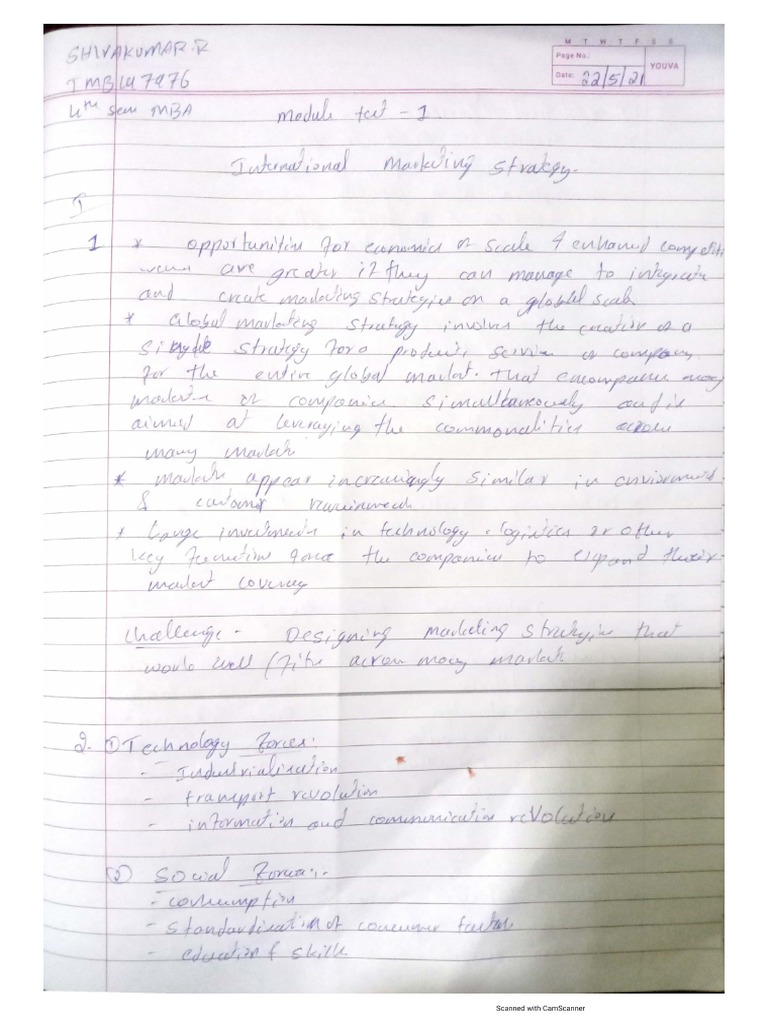 SHIVAKUMAR.R
M T W T F S S
Page No.:
YOUVA
Date: 22/5/21
4th sem MBA
Module test - 1
International Marketing Strategy.
I
1 * opportunities for economics of scale & enhanced competiti
are greater if they can manage to integrate
and create marketing strategies on a global scale
* Global marketing strategy involves the creation of a
single strategy for a product, service or company
for the entire global market. that encompasses many
markets or companies simultaneously and is
aimed at leveraging the commonalities across
many markets
* markets appear increasingly similar in environment
& customer requirements
* Large investments in technology, logistics or other
key function force the companies to expand their
market coverage
Challenge - Designing marketing strategies that
would well / fits across many markets
2. ① Technology Forces:
- Industrialisation
- transport revolution
- information and communication revolution
② Social Forces:-
- consumption
- standardization of consumer tastes
- education & skills
Scanned with CamScanner